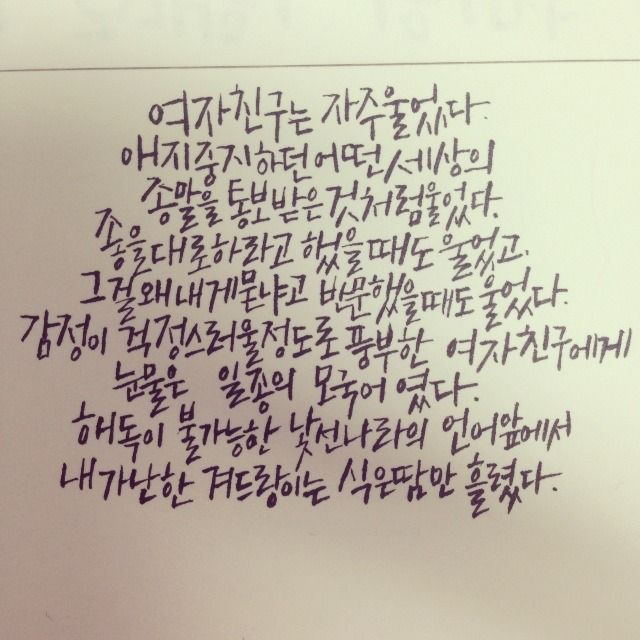 여자친구는 자주울었다.
애지중지하던 어떤 세상의
종말을 통보받은것처럼울었다.
좋을대로하라고 했을때도 울었고.
그걸왜내게묻냐고 반문했을때도울었다.
감정이 걱정스러울정도로풍부한 여자친구에게
눈물은 일종의 모국어 였다.
해독이 불가능한 낯선나라의 언어앞에서
내가난한 겨드랑이는 식은땀만 흘렸다.